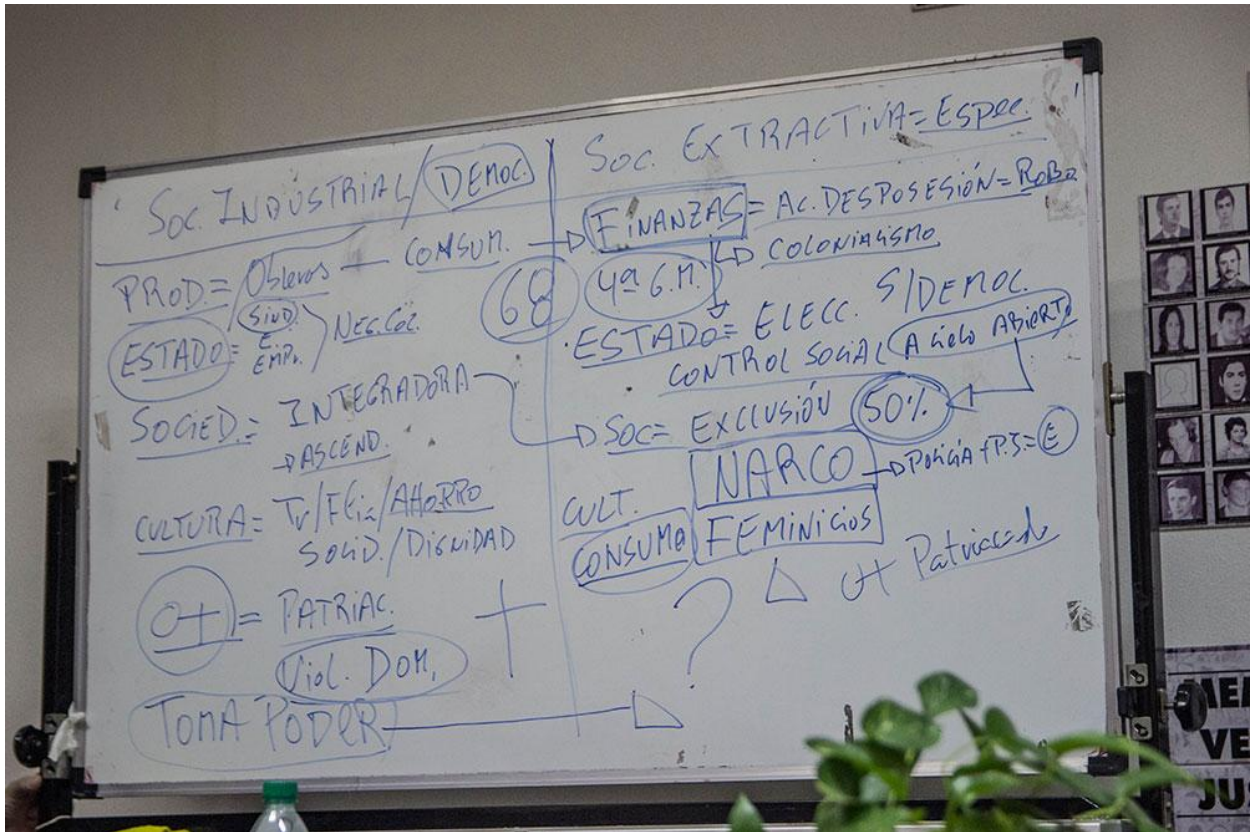 Soc. INDUSTRIAL/DEMOC.
PROD.= Obreros — CONSUM.
ESTADO= SIND. E. EMPR. NEG. COL.
SOCIED.= INTEGRADORA
→ASCEND.
CULTURA= TV/FLIA/AHORRO
SOLID./DIGNIDAD
= PATRIAC.
Viol. DOM.
TOMA PODER
68
Soc. EXTRACTIVA= Espec.
FINANZAS= AC. DESPOSESIÓN= ROBO
4ª G.M. COLONIALISMO
ESTADO= ELECC. S/DEMOC.
CONTROL SOCIAL A Cielo ABIERTO
Soc= EXCLUSIÓN 50%
NARCO → POLICÍA + P.J.= E
CULT.
CONSUMO FEMINICIOS
? + Patriarcado
MEM
VE
JUS